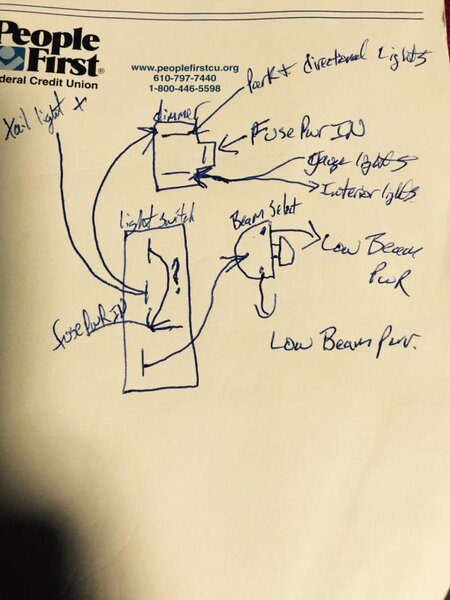 People
First
®
deral Credit Union
www.peoplefirstcu.org
610-797-7440
1-800-446-5598
Park + directional Lights
tail light +
dimmer
Fuse Pwr IN
Gauge lights
Interior lights
Light Switch
Beam Select
?
Low Beam
PWR
fuse PWR IN
Low Beam Pwr.